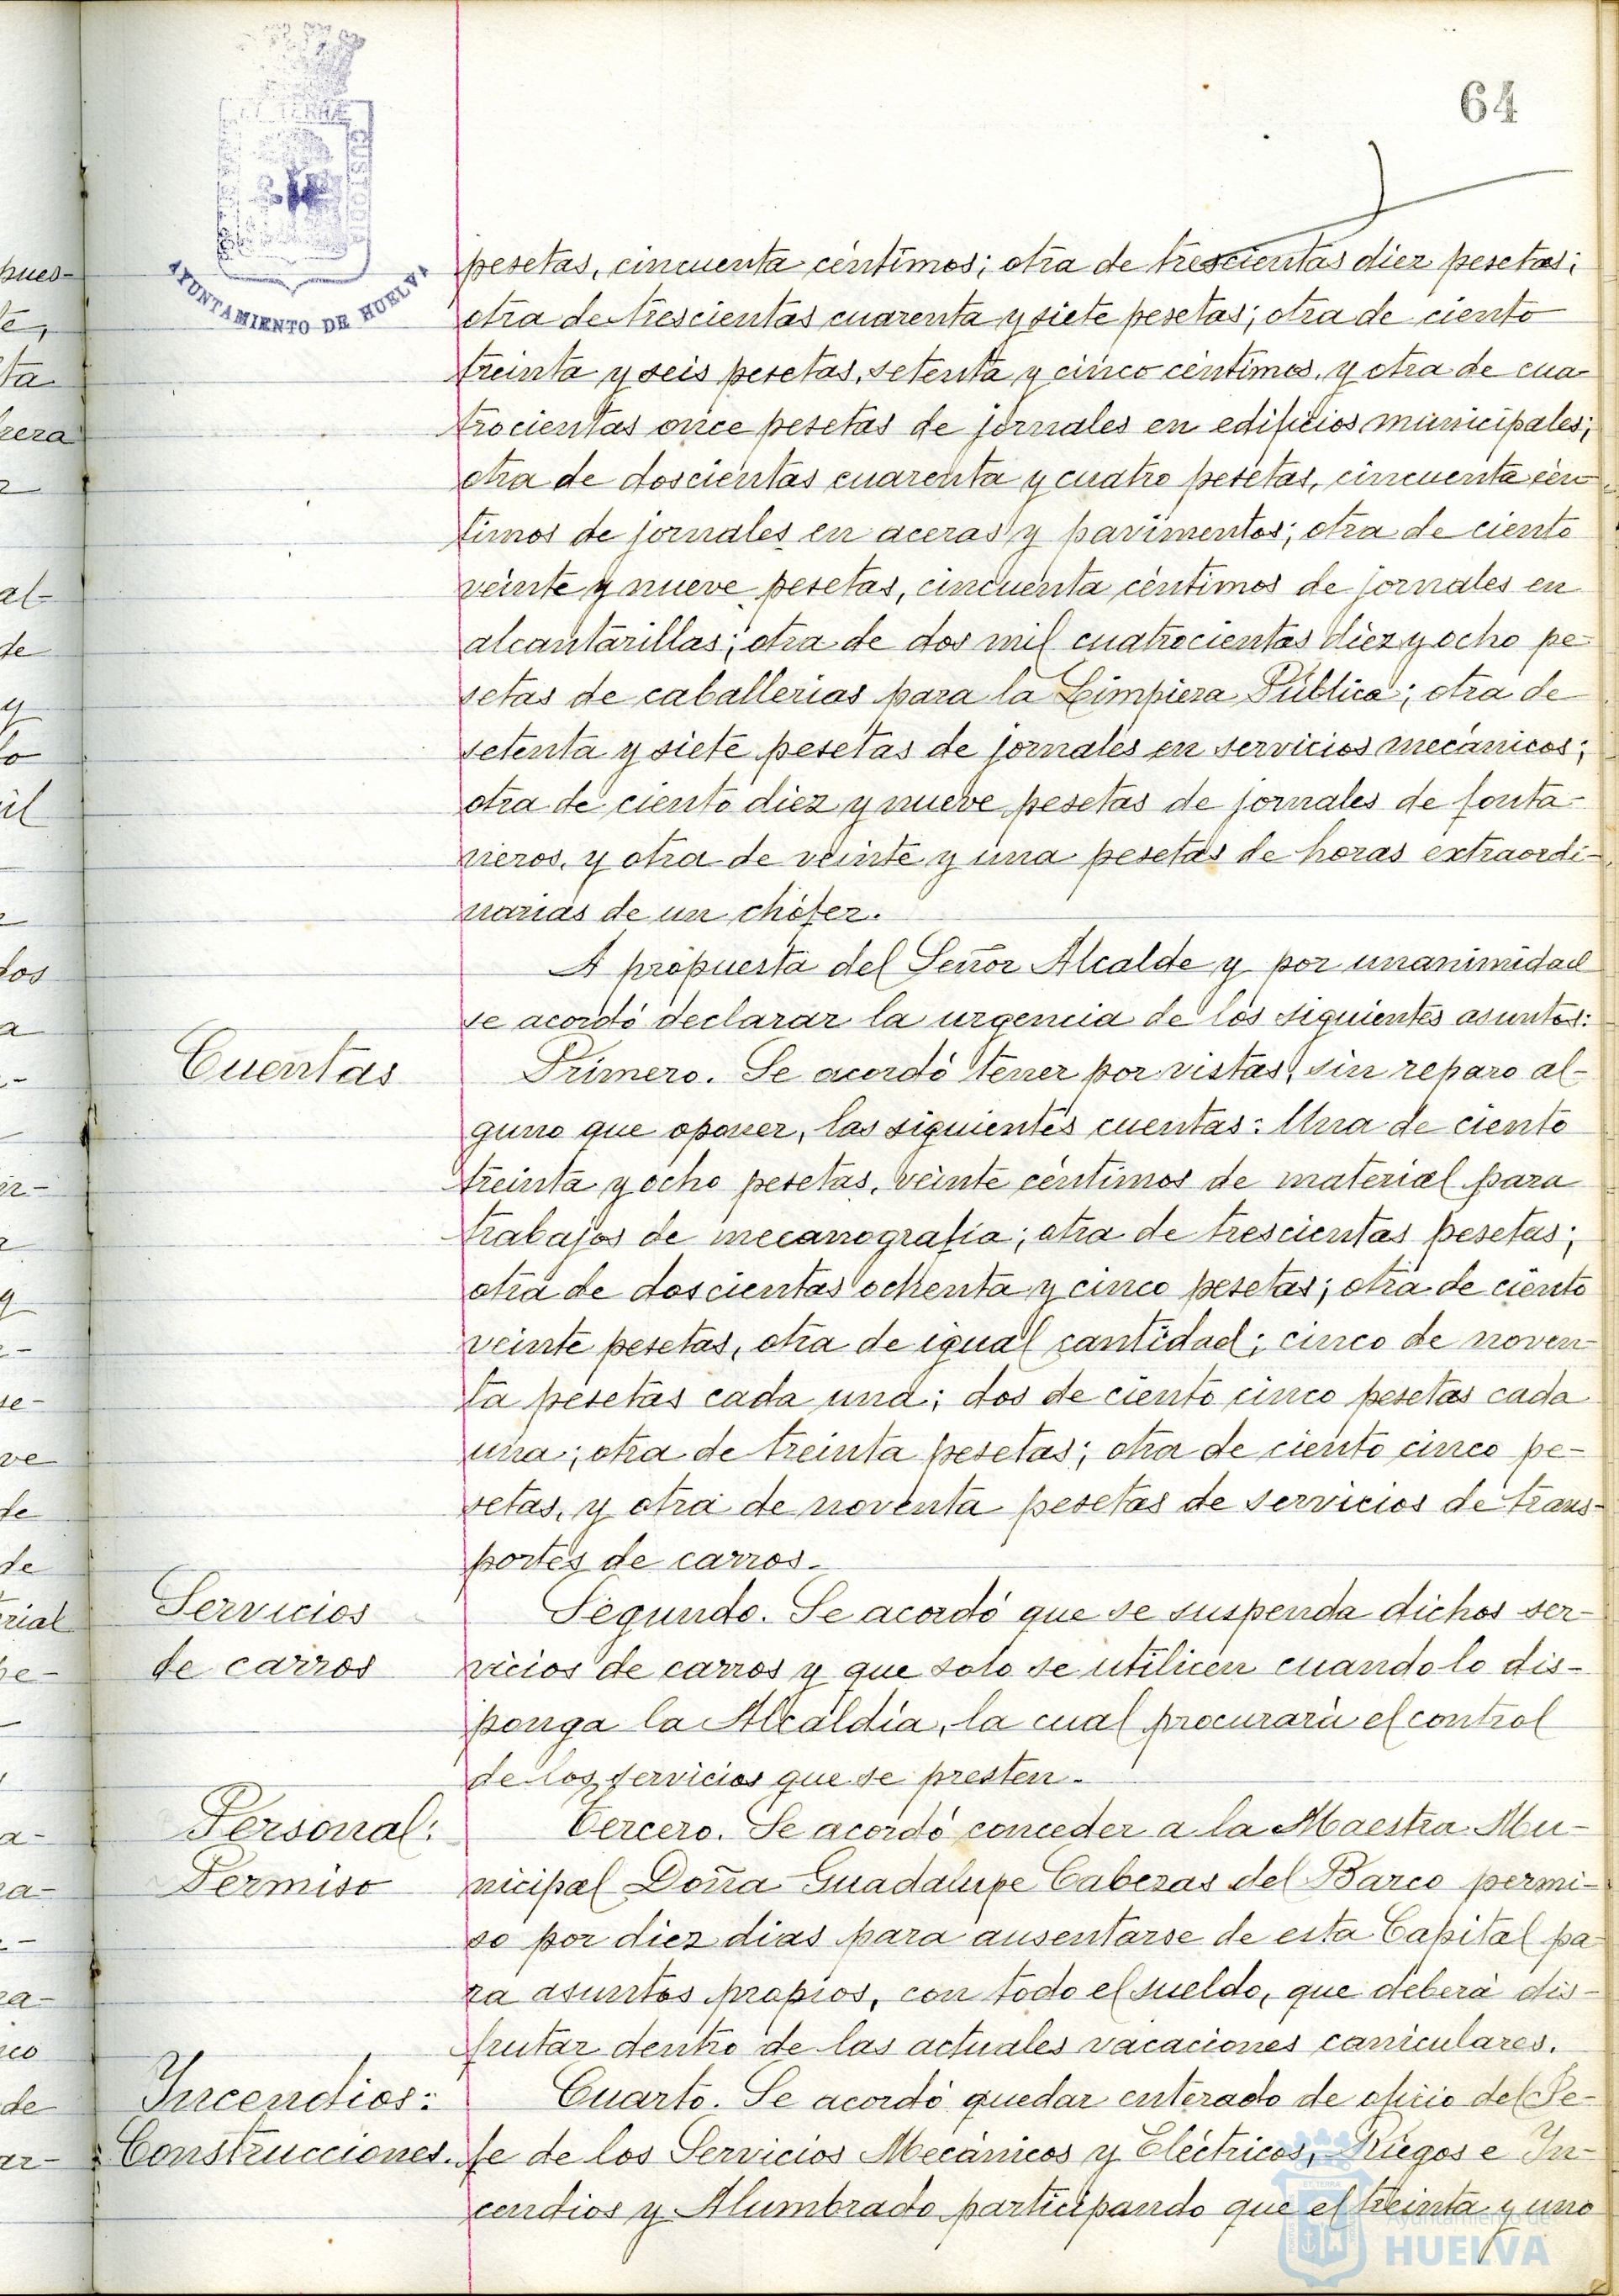 64
AYUNTAMIENTO DE HUELVA
pesetas, cincuenta céntimos; otra de trescientas diez pesetas;
otra de trescientas cuarenta y siete pesetas; otra de ciento
treinta y seis pesetas, setenta y cinco céntimos, y otra de cua-
trocientas once pesetas de jornales en edificios municipales;
otra de doscientas cuarenta y cuatro pesetas, cincuenta cén-
timos de jornales en aceras y pavimentos; otra de ciento
veinte y nueve pesetas, cincuenta céntimos de jornales en
alcantarillas; otra de dos mil cuatrocientas diez y ocho pe-
setas de caballerias para la Limpieza Pública; otra de
setenta y siete pesetas de jornales en servicios mecánicos;
otra de ciento diez y nueve pesetas de jornales de fonta-
neros, y otra de veinte y una pesetas de horas extraordi-
narias de un chófer.
A propuesta del Señor Alcalde y por unanimidad
se acordó declarar la urgencia de los siguientes asuntos:
Cuentas
Primero. Se acordó tener por vistas, sin reparo al-
guno que oponer, las siguientes cuentas: Una de ciento
treinta y ocho pesetas, veinte céntimos de material para
trabajos de mecanografía; otra de trescientas pesetas;
otra de doscientas ochenta y cinco pesetas; otra de ciento
veinte pesetas, otra de igual cantidad; cinco de noven-
ta pesetas cada una; dos de ciento cinco pesetas cada
una; otra de treinta pesetas; otra de ciento cinco pe-
setas, y otra de noventa pesetas de servicios de trans-
portes de carros.
Servicios
de carros
Segundo. Se acordó que se suspenda dichos ser-
vicios de carros y que solo se utilicen cuando lo dis-
ponga la Alcaldía, la cual procurará el control
de los servicios que se presten.
Personal:
Permiso
Tercero. Se acordó conceder a la Maestra Mu-
nicipal Doña Guadalupe Cabezas del Barco permi-
so por diez dias para ausentarse de esta Capital pa-
ra asuntos propios, con todo el sueldo, que deberá dis-
frutar dentro de las actuales vacaciones caniculares.
Incendios:
Construcciones.
Cuarto. Se acordó quedar enterado de oficio del Je-
fe de los Servicios Mecánicos y Eléctricos, Riegos e In-
cendios y Alumbrado participando que el treinta y uno
Ayuntamiento de
HUELVA